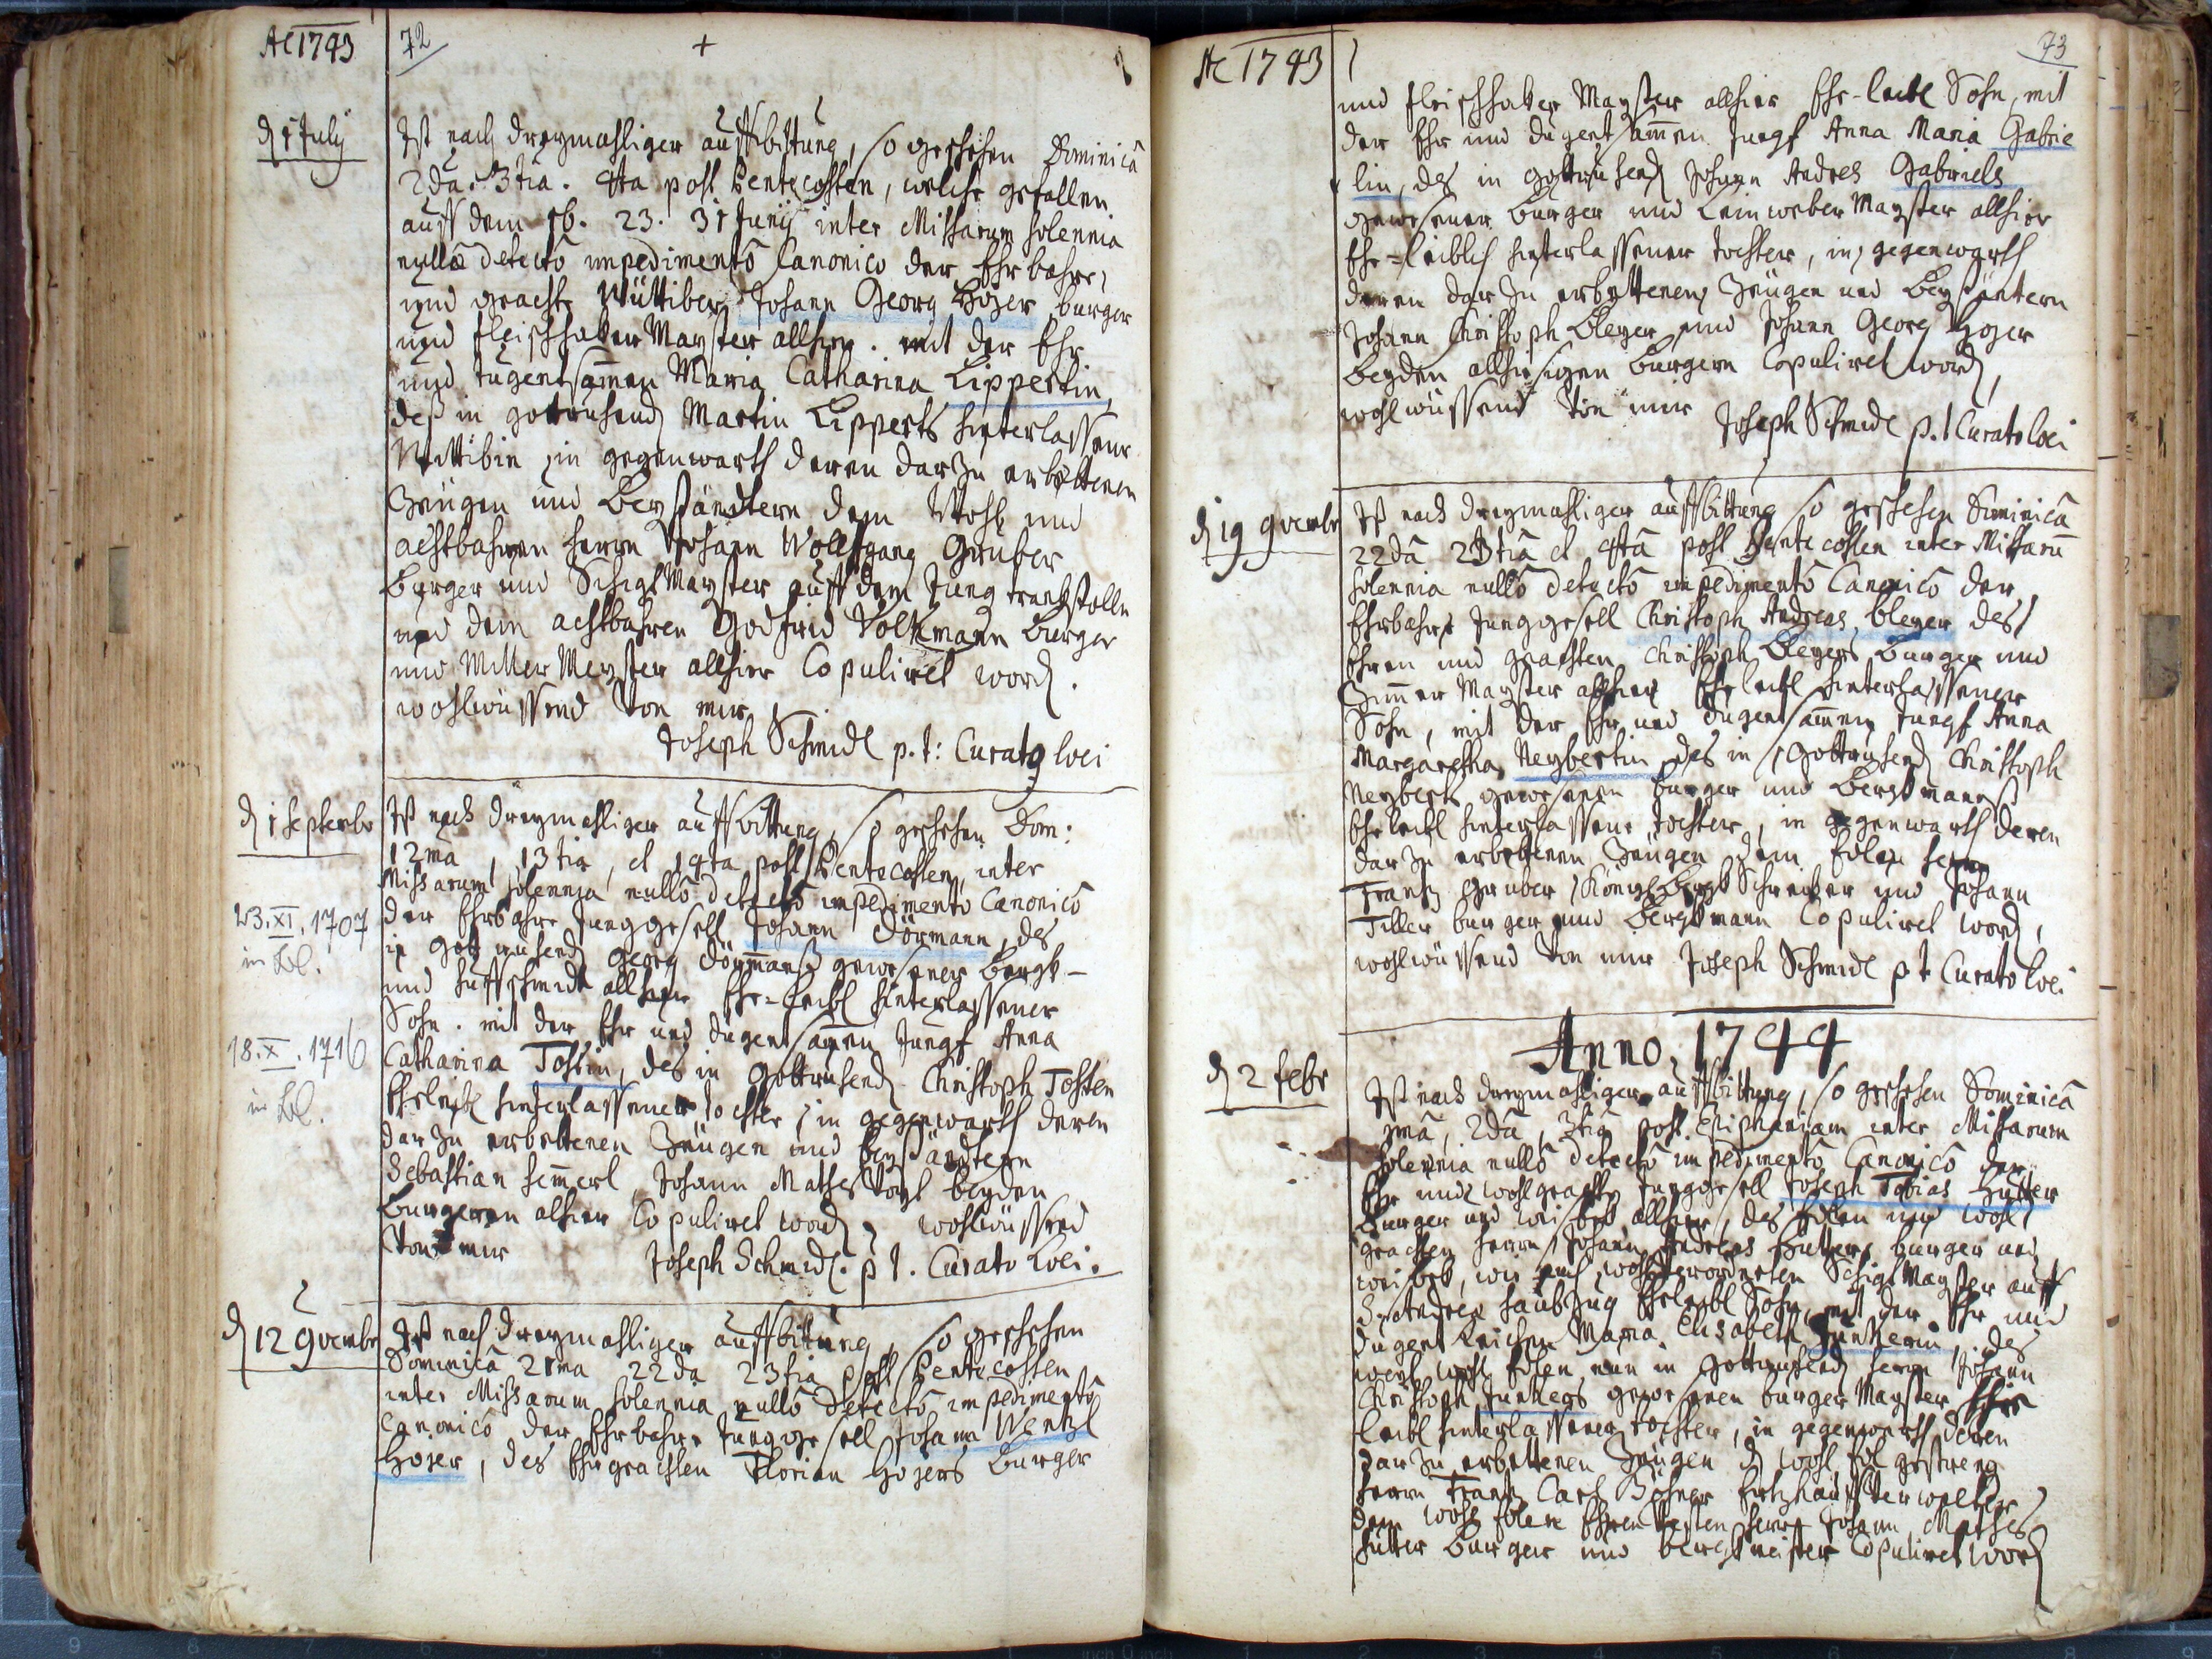 Ac 1743
72
+
d 1 July
Ist nach dreymahliger auffbittung, so geschehen Dominicâ
2da. 3tia. 4ta post Pentecosten, welche gefallen
auff dem 16. 23. 31 Junij inter Missarum solennia
nullô detectô impedimentô Canonico der Ehrbahre,
und geachte Wüttiber Johann Georg Hoyer burger
und fleischhaker Mayster allhier. mit der Ehr
und tugentsamen Maria Catharina Lippertin,
deß in gottruhend Martin Lipperts hinterlassene
Wittibin, in gegenwarth deren darzu erbettenen
Zeugen und Beyständtern dem Wohl und
achtbahren herrn Johann Wolffgang Gruber
Burger und Schigt Mayster auff dem
und dem achtbahren Godfrid Volkmann Burger
und Miller Meyster allhier Copuliret word.
wohlwüssend von mir
Joseph Schmidl p.t: Curatg loci
d 1 Septembr
Ist nach dreymahliger auffbittung, so geschehen Dom:
12ma, 13tia, et 14ta post Pentecosten, inter
Missarum solennia nullô detectô impedimento Canonicô
23.XI.1707
der Ehrbahre Junggesell Johann Dörmann, des
in
in gott ruhend Georg Dörmanß gewesener Bergk-
und huffschmidt allhier Ehr-leibl hinterlassener
Sohn. mit der Ehr und dugentsamen Jungf Anna
18.X.1716
Catharina Tostin, des in Gottruhend Christoph Tosten
in
Ehrleibl hinterlassener tochter, in gegenwarth deren
darzu erbettenen Zeugen und beyständtern
Sebastian hemerl, Johann Mathes Voyt beyden
Burgeren alhier Copuliret word, wohlwüssend
Von mir
Joseph Schmidl. p t. Curato Loci.
d 12 9vembr
Ist nach dreymahliger auffbittung, so geschehen
Dominicâ 21ma 22da 23tia post Pentecosten
inter Missarum solennia nullô detectô impedimentô
Canonicô der Ehrbahre Junggesell Johann Wentzl
Hoyer, des Ehrgeachten Florian Hoyers Burger
Ac 1743
73
und fleischhaker Mayster allhier Ehr-leibl Sohn, mit
der Ehr und dugentsammen Jungf Anna Maria Gabrie
lin, des in gottruhend Johann Andres Gabriels
gewesener Burger und Leinweber Mayster allhier
Ehr-leiblich hinterlassener tochter, in gegenwarth
deren darzu erbettenen Zeugen und Beyständtern
Johann Christoph Bleyer, und Johann Georg Hoyer
beyden allhiesigen Burgern Copuliret word,
wohlwüssend Von mir
Joseph Schmidl p.t Curato loci
d 19 9vembr
Ist nach dreymahliger auffbittung so geschehen Dominicâ
22dâ 23tiâ et 4tâ post Pentecosten inter Missarũ
solennia nullô detectô impedimentô Canonicô der
Ehrbahre Junggesell Christoph Andreas bleyer des
Ehren und geachten Christoph Bleyers Burger und
Zimer Mayster allhier Ehrleibl hinterlassener
Sohn, mit der Ehr und dugentsammen Jungf Anna
Margaretha Neybertin, des in Gottruhend Christoph
Neyberts gewesenen burger und Bergkmannß
Ehrleibl hinterlassene tochter, in gegenwarth deren
darzu erbettenen Zeugen dem Edlen herrn
Frantz Gruber Königl Bergk Schreiber und Johann
Tiller burger und Bergkmann Copuliret word,
wohlwüssend Von mir Joseph Schmidl p t Curato loci
Anno, 1744
d 2 Febr
Ist nach dreymahliger auffbittung, so geschehen Dominicâ
1mâ, 2dâ, 3tiâ post Epiphaniam inter Missarum
solennia nullô detectô impedimentô Canonicô der
Ehr und wohlgeachte Junggesell Joseph Tobias Hutter
Burger und allhier, des Edlen und wohl
geachten herrn Johann Andreas Hutters burger und
wie auch wohlverordneten Schigt Mayster auff
St Andree Ehrleibl Sohn, mit der Ehr und
dugentreichen Maria Elisabeth Junkerin, des
weyl wohl Edlen nun in Gottruhend herrn Johann
Christoph Junkers gewesenen burger Mayster Ehr
leibl hinterlassener tochter, in gegenwarth deren
darzu erbettenen Zeugen d wohl Edl gestreng
herrn Frantz Carl Böhner
dem wohl Edlen Ehrenvesten herrn Johann Mathes
hutter Burger und bergkmeister Copuliret word